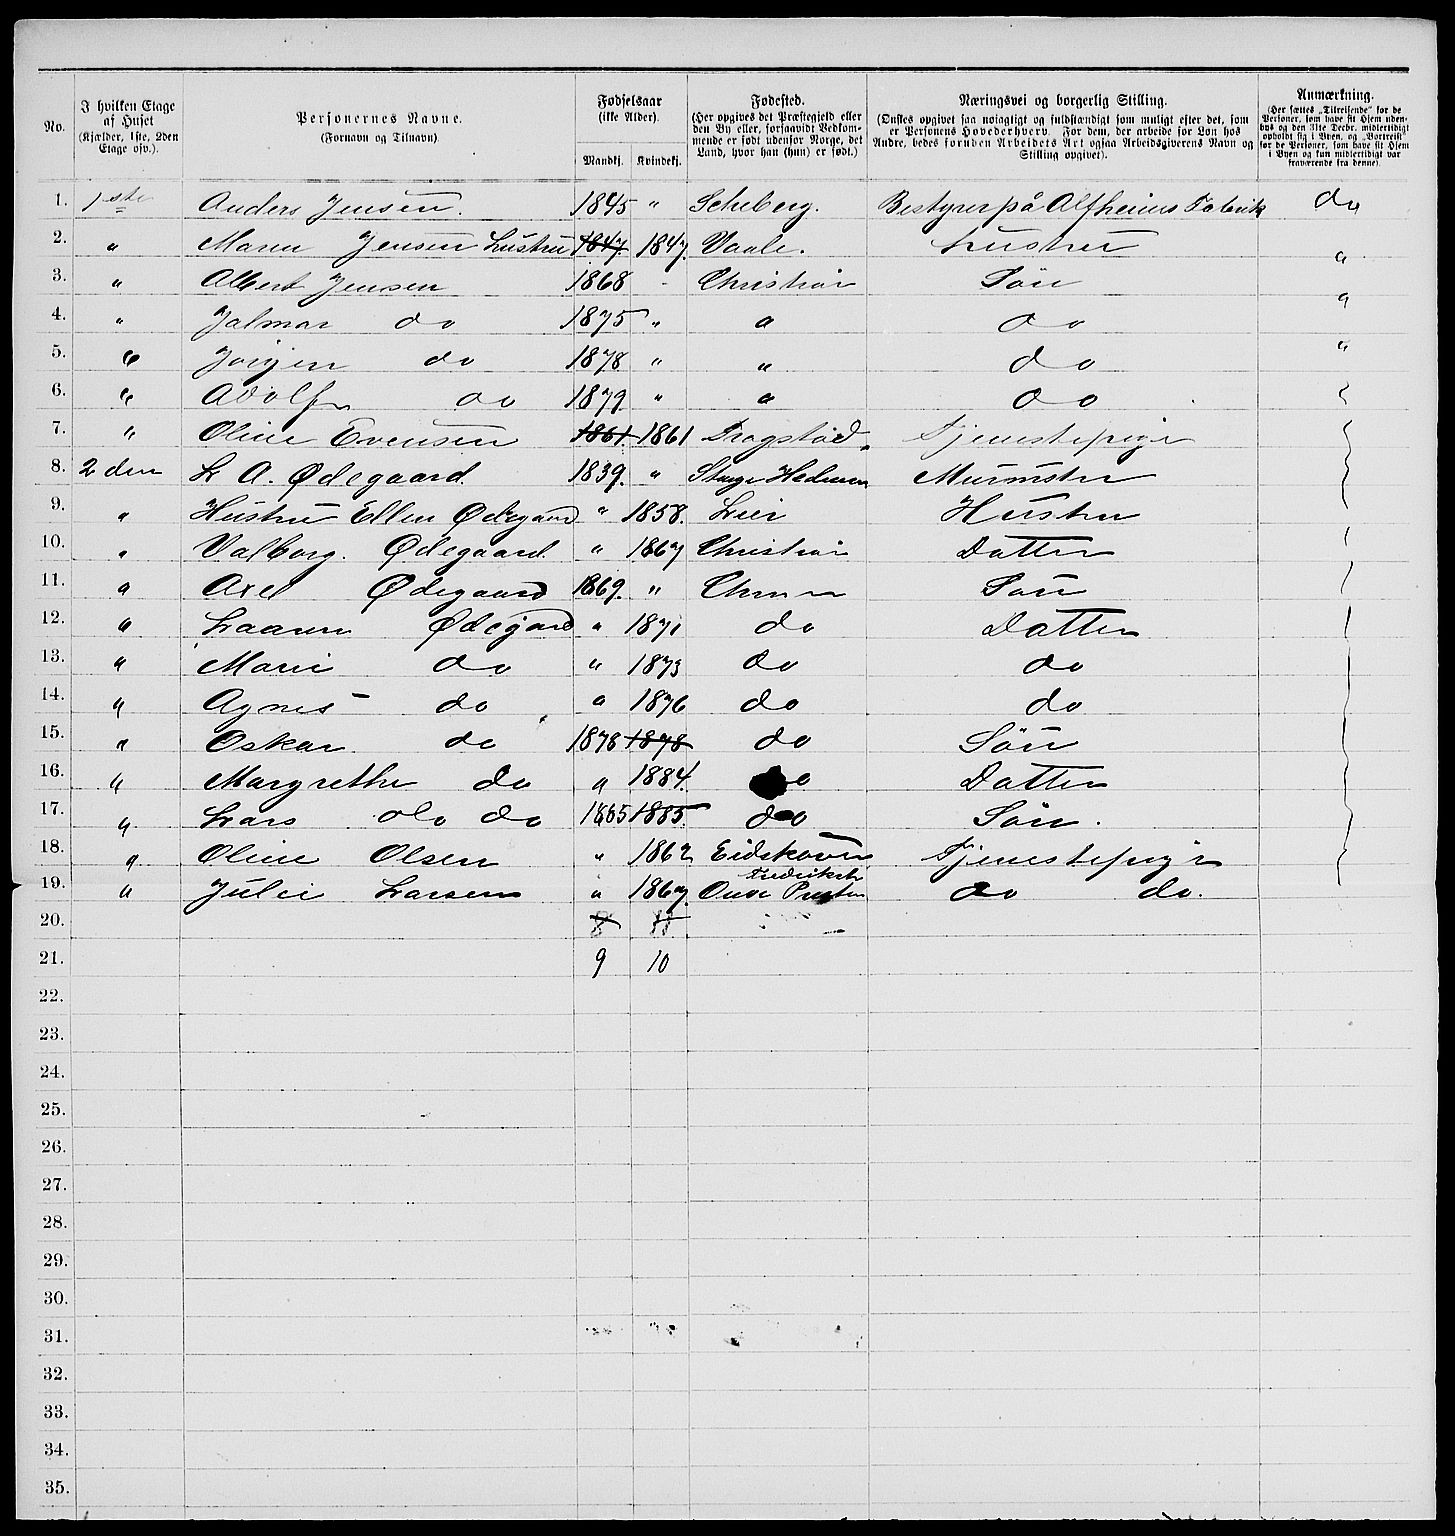 No.
I hvilken Etage af Huset (Kjælder, 1ste, 2den Etage osv.).
Personernes Navne. (Fornavn og Tilnavn).
Fødselsaar (ikke Alder). Mandkj. Kvindekj.
Fødested. (Her opgives det Præstegjeld eller den By eller, forsaavidt Vedkommende er født udenfor Norge, det Land, hvor han (hun) er født.)
Næringsvei og borgerlig Stilling. (Ønskes opgivet saa nøiagtigt og fuldstændigt som muligt efter det, som er Personens Hovederhverv. For dem, der arbeide for Løn hos Andre, bedes foruden Arbeidets Art ogsaa Arbeidsgiverens Navn og Stilling opgivet).
Anmærkning. (Her sættes „Tilreisende“ for de Personer, som have sit Hjem udenbys og den 31te Decbr. midlertidigt opholdt sig i Byen, og „Bortreist“ for de Personer, som have sit Hjem i Byen og kun midlertidigt var fraværende fra denne).
1. 1ste Anders Jensen. 1845 " Scheberg. Bestyrer på Altheims Fabrik do
2. " Maren Jensen Hustru 1847. 1847. Vaale. Hustru "
3. " Albert Jensen 1868 - Christian Søn "
4. " Jalmar do 1875 " " do
5. " Jørgen do 1878 " " do "
6. " Adolf do 1879. " " do
7. " Oline Evensen 1861. 1861 Tjenestepige
8. 2den L A. Ødegaard. 1839. " Stange Hedmarken Murmster
9. " Hustru Ellen Ødegaard " 1858. Lier Hustru
10. " Valborg. Ødegaard. " 1867 Christian Datter
11. " Axel Ødegaard 1869. " Søn
12. " Ødegard " 1871 do Datter
13. " Marie do " 1873 do do
14. " Agnes do " 1876 do do
15. " Oskar. do 1878 1878 do Søn
16. " Margrethe do " 1884. do Datter
17. " Lars ole do 1865 1885. do Søn.
18. " Oline Olsen " 1862 Eidskoven Tjenestepige
19. " Julie Larsen " 1867. Fredriksh do do.
20. 8 11
21. 9 10
22.
23.
24.
25.
26.
27.
28.
29.
30.
31.
32.
33.
34.
35.